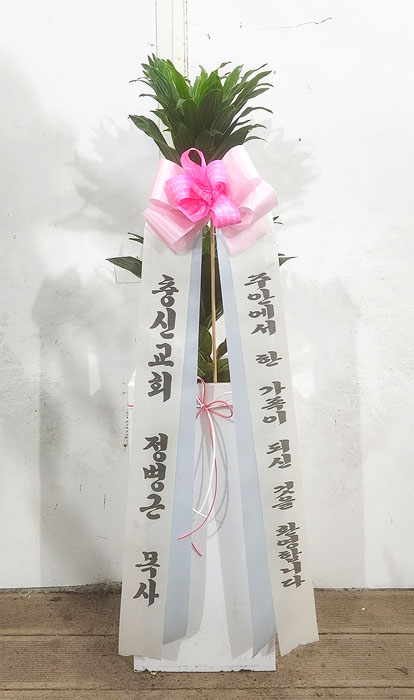 충신교회 정병근 목사
주안에서 한 가족이 되신 것을 환영합니다